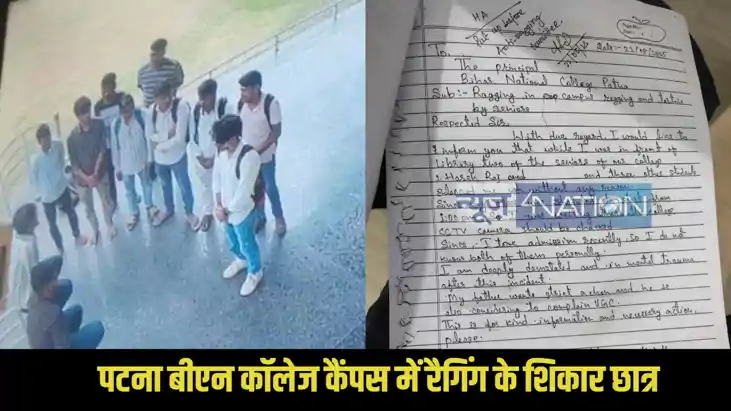 HA
Put up before
Anti-ragging
Committee.
Date:- 22/08/2025
To,
The principal
Bihar National College Patna
Sub:- Ragging in campus regging and torture
by seniors
Respected Sir,
With due regard, I would like to
inform you that while I was in front of
library two of the seniors of our college
Harsh Raj and and three other students
without any reason
न्यूज़ 4NATION
CCTV camera should be
Since, I took admission recently, so I do not
know both of them personally.
I am deeply and in mental trauma
after this incident.
My father wants strict action and he is
also considering to complain UGC.
This is for kind information and necessary action,
please.
पटना बीएन कॉलेज कैंपस में रैगिंग के शिकार छात्र